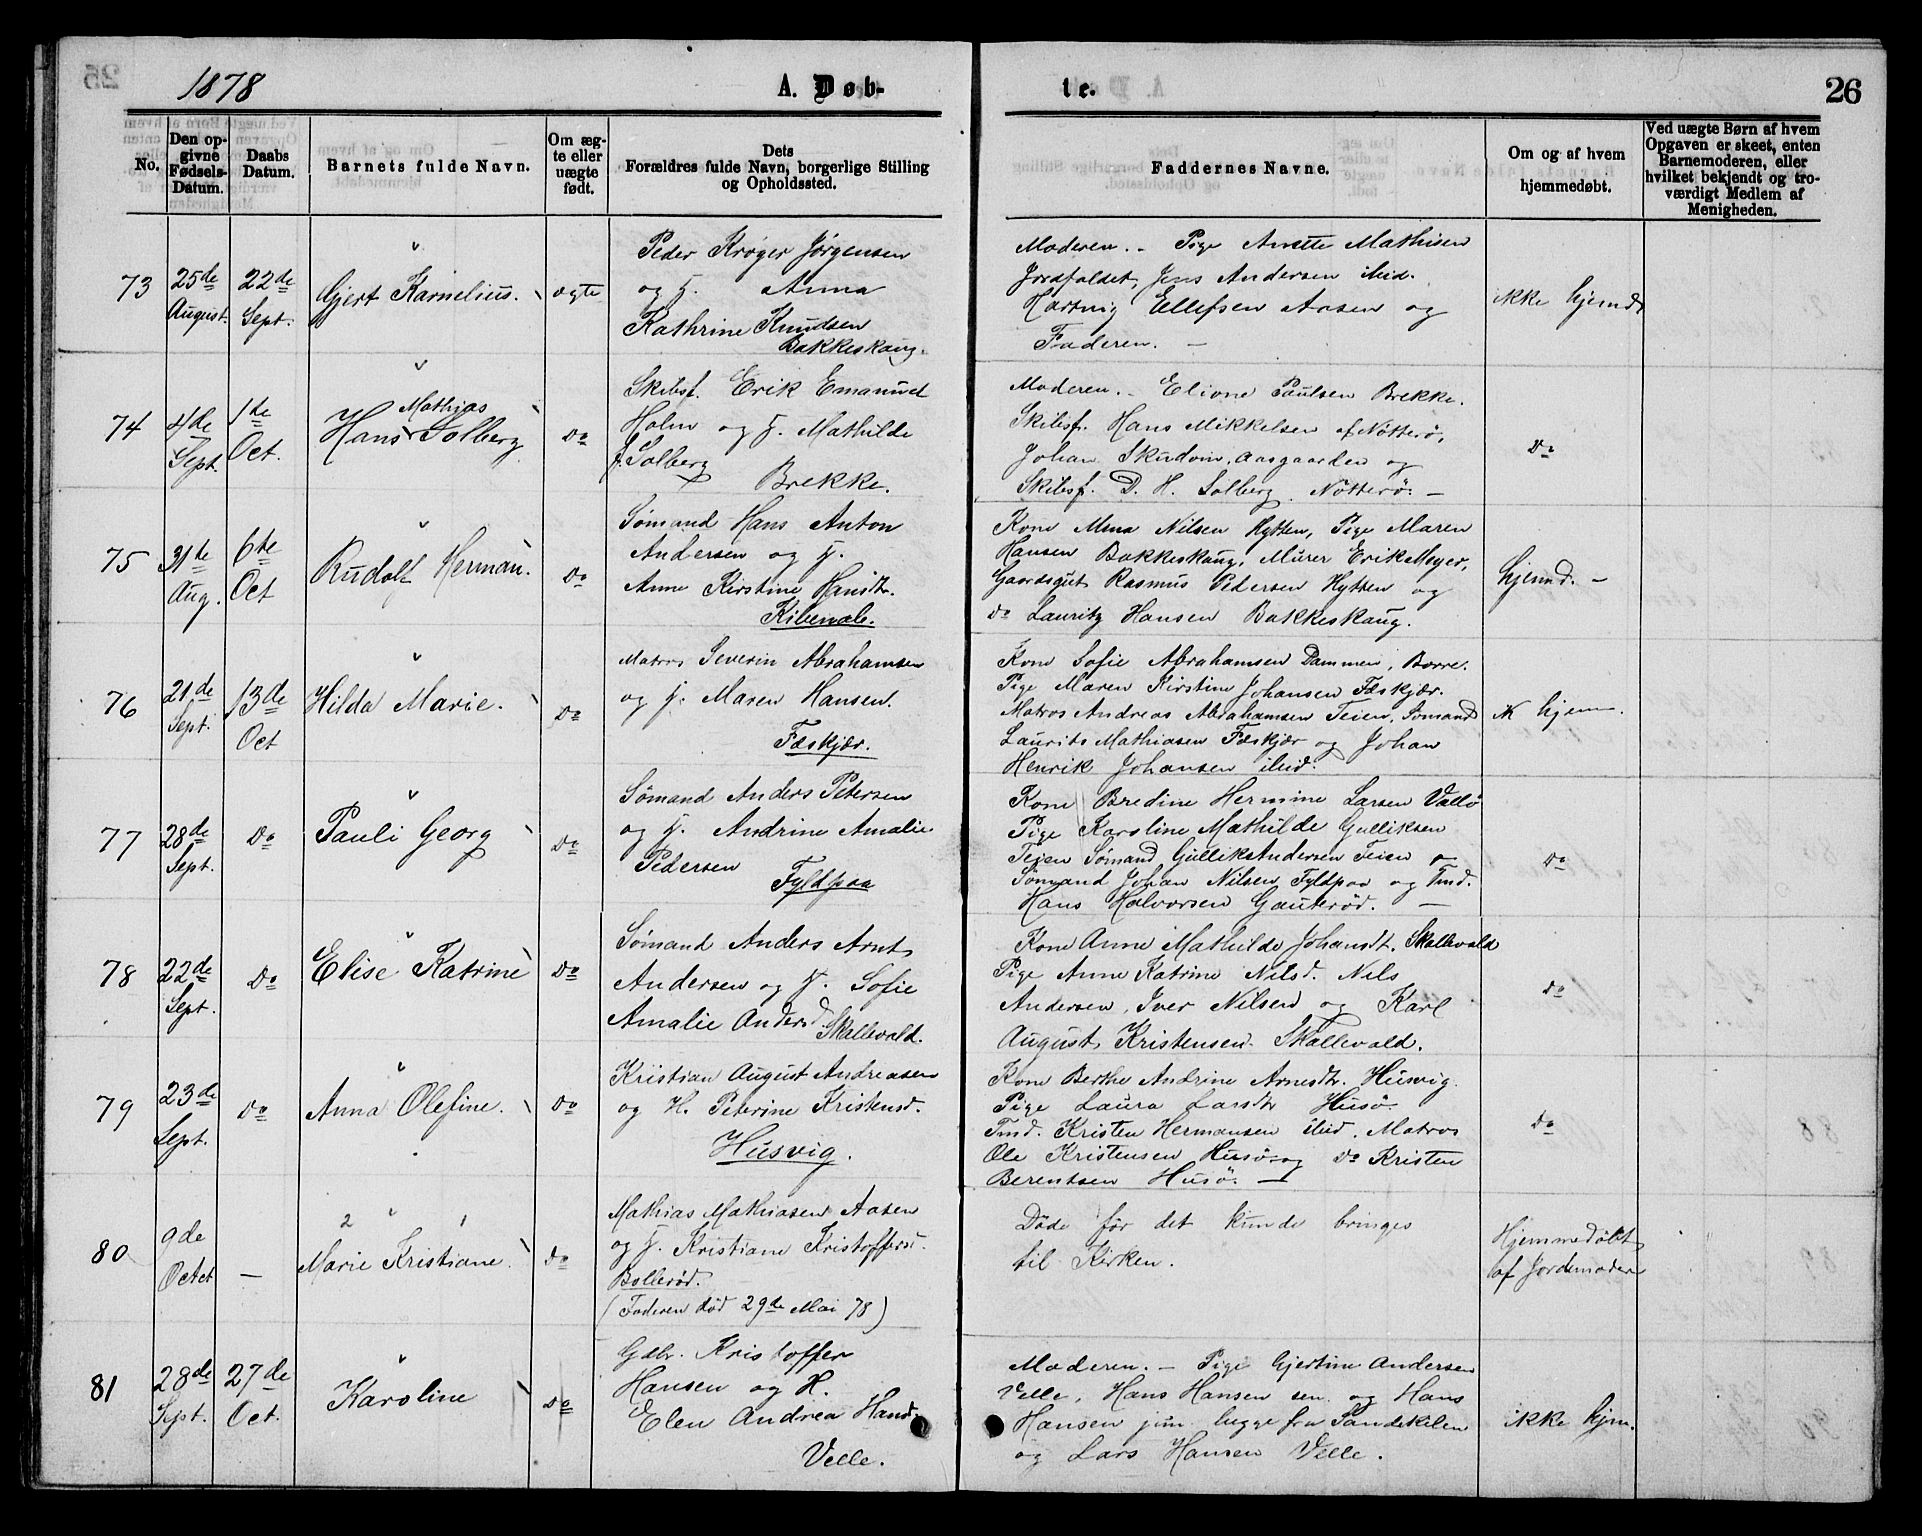 1878
A. Døb-
te.
26
No.
Den op-
givne
Fødsels-
Datum.
Daabs
Datum.
Barnets fulde Navn.
Om æg-
te eller
uægte
født.
Dets
Forældres fulde Navn, borgerlige Stilling
og Opholdssted.
Faddernes Navne.
Om og af hvem
hjemmedøbt.
Ved uægte Børn af hvem
Opgaven er skeet, enten
Barnemoderen, eller
hvilket bekjendt og tro-
værdigt Medlem af
Menigheden.
73
25de
August.
22de
Sept.
Gjert Karnelius.
ægte
Peder Krøger Jørgensen
og H. Anna
Kathrine Knudsen
Bakkeskaug.
Moderen. - Pige Anette Mathisen
Jordfaldet, Jens Andersen ibid.
Hartvig Ellefsen Aasen og
Faderen. -
ikke hjemd
74
4de
Sept.
1de
Oct.
Mathias
Hans Solberg
Do
Skibsf. Erik Emanuel
Holm og H. Mathilde
f. Solberg
Brekke.
Moderen. - Elione Paulsen Brekke.
Skibsf. Hans Mikkelsen af Nötterö,
Johan Skudom, Aasgaarden og
Skibsf. D. H. Solberg. Nötterö. -
Do
75
31te
Aug.
6te
Oct
Rudolf Herman.
Do
Sömand Hans Anton
Andersen og H.
Anne Kirstine Hansdtr.
Kone Nilsen Hytten, Pige Maren
Hansen Bakkeskaug, Murer Erik Meyer,
Gaardsgut Rasmus Pedersen Hytten og
Do Lauritz Hansen Bakkeskaug.
hjemd. -
76
21de
Sept.
13de
Oct
Hilda Marie.
Do
Matros Severin Abrahamsen
og H. Maren Hansen.
Fæskjær.
Kone Sofie Abrahamsen Dammen, Borre.
Pige Maren Kirstine Johansen Fæskjær.
Matros Andreas Abrahamsen Teien, Sömand
Laurits Mathiasen Fæskjær og Johan
Henrik Johansen ibid.
ik hjem.
77
28de
Sept.
Do
Pauli Georg
Do
Sömand Anders Petersen
og H. Andrine Amalie
Pedersen
Fyldpaa
Kone Bredine Hermine Larsen Vallö
Pige Karoline Mathilde Gulliksen
Teien Sömand Gullik Andersen Teien
Sömand Johan Nilsen Fyldpaa og Tmd.
Hans Halvorsen Gauteröd. -
Do
78
22de
Sept.
Do
Elise Katrine
Do
Sömand Anders Arnt
Andersen og H. Sofie
Amalie Andersd.
Skallevald.
Kone Anne Mathilde Johansdt. Skallevald
Pige Anne Katrine Nilsd. Nils
Andersen, Iver Nilsen og Karl
August Kristensen. Skallevald.
Do
79
23de
Sept.
Do
Anna Olefine.
Do
Kristian August Andreasen
og H. Peterine Kristensd.
Husvig.
Kone Berthe Andrine Arnesdtr. Husvig.
Pige Laura Larsdtr Husö
Tmd. Kristen Hermansen ibid. Matros
Ole Kristensen Husö og Do Kristen
Berentsen Husö. -
Do
80
9de
Octct
-
2 1
Marie Kristiane.
do
Mathias Mathiasen Aasen
og H. Kristiane Kristoffers.
Bolleröd.
(Faderen död 29de Mai 78)
Döde för det kunde bringes
til Kirken.
Hjemmedöbt
af Jordemoderen
81
28de
Sept.
27de
Oct.
Karoline
Do
Gdbr. Kristoffer
Hansen og H.
Elen Andrea Hansd.
Velle.
Moderen. - Pige Gjertine Andersen
Velle, Hans Hansen sen. og Hans
Hansen jun. begge fra Sandekilen
og Lars Hansen Velle.
ikke hjem.